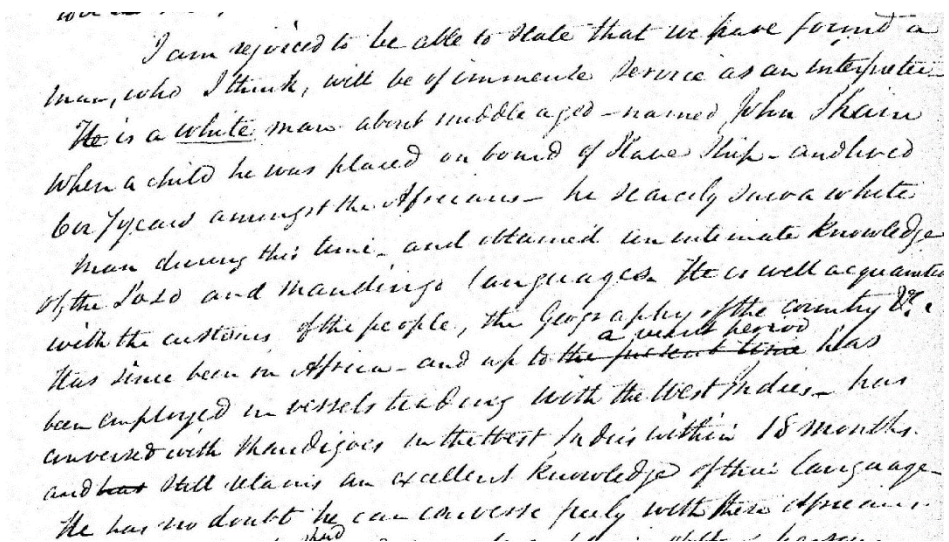 I am rejoiced to be able to state that we have found a
man, who I think, will be of immense service as an interpreter
He is a white man about middle aged - named John
When a child he was placed on board of Slave Ship - and lived
6 or 7 years amongst the Africans - he scarcely saw a white
man during this time - and obtained an intimate knowledge
of the and Mandingo languages. He is well acquainted
with the customs of the people, the Geography of the country &c.
a recent period
Has since been in Africa - and up to the present time has
been employed in vessels trading with the West Indies - has
conversed with Mandigoes in the West Indies within 18 months.
and has still retains an excellent knowledge of their language
He has no doubt he can converse freely with these Africans.